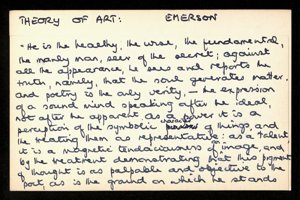 THEORY OF ART: EMERSON
"He is the healthy, the wise, the fundamental,
the manly man, seer of the secret; against
all the appearance, he sees and reports the
truth, namely, that the soul generates matter.
and poetry is the only verity, — the expression
of a sound mind speaking after the ideal,
not after the apparent. as a power it is a
perception of the symbolic character of things, and
the treating them as representative: as a talent
it is a magnetic tenaciousness of an image, and
by the treatment demonstrating that this pigment
of thought is as palpable and objective to the
poet as is the ground on which he stands